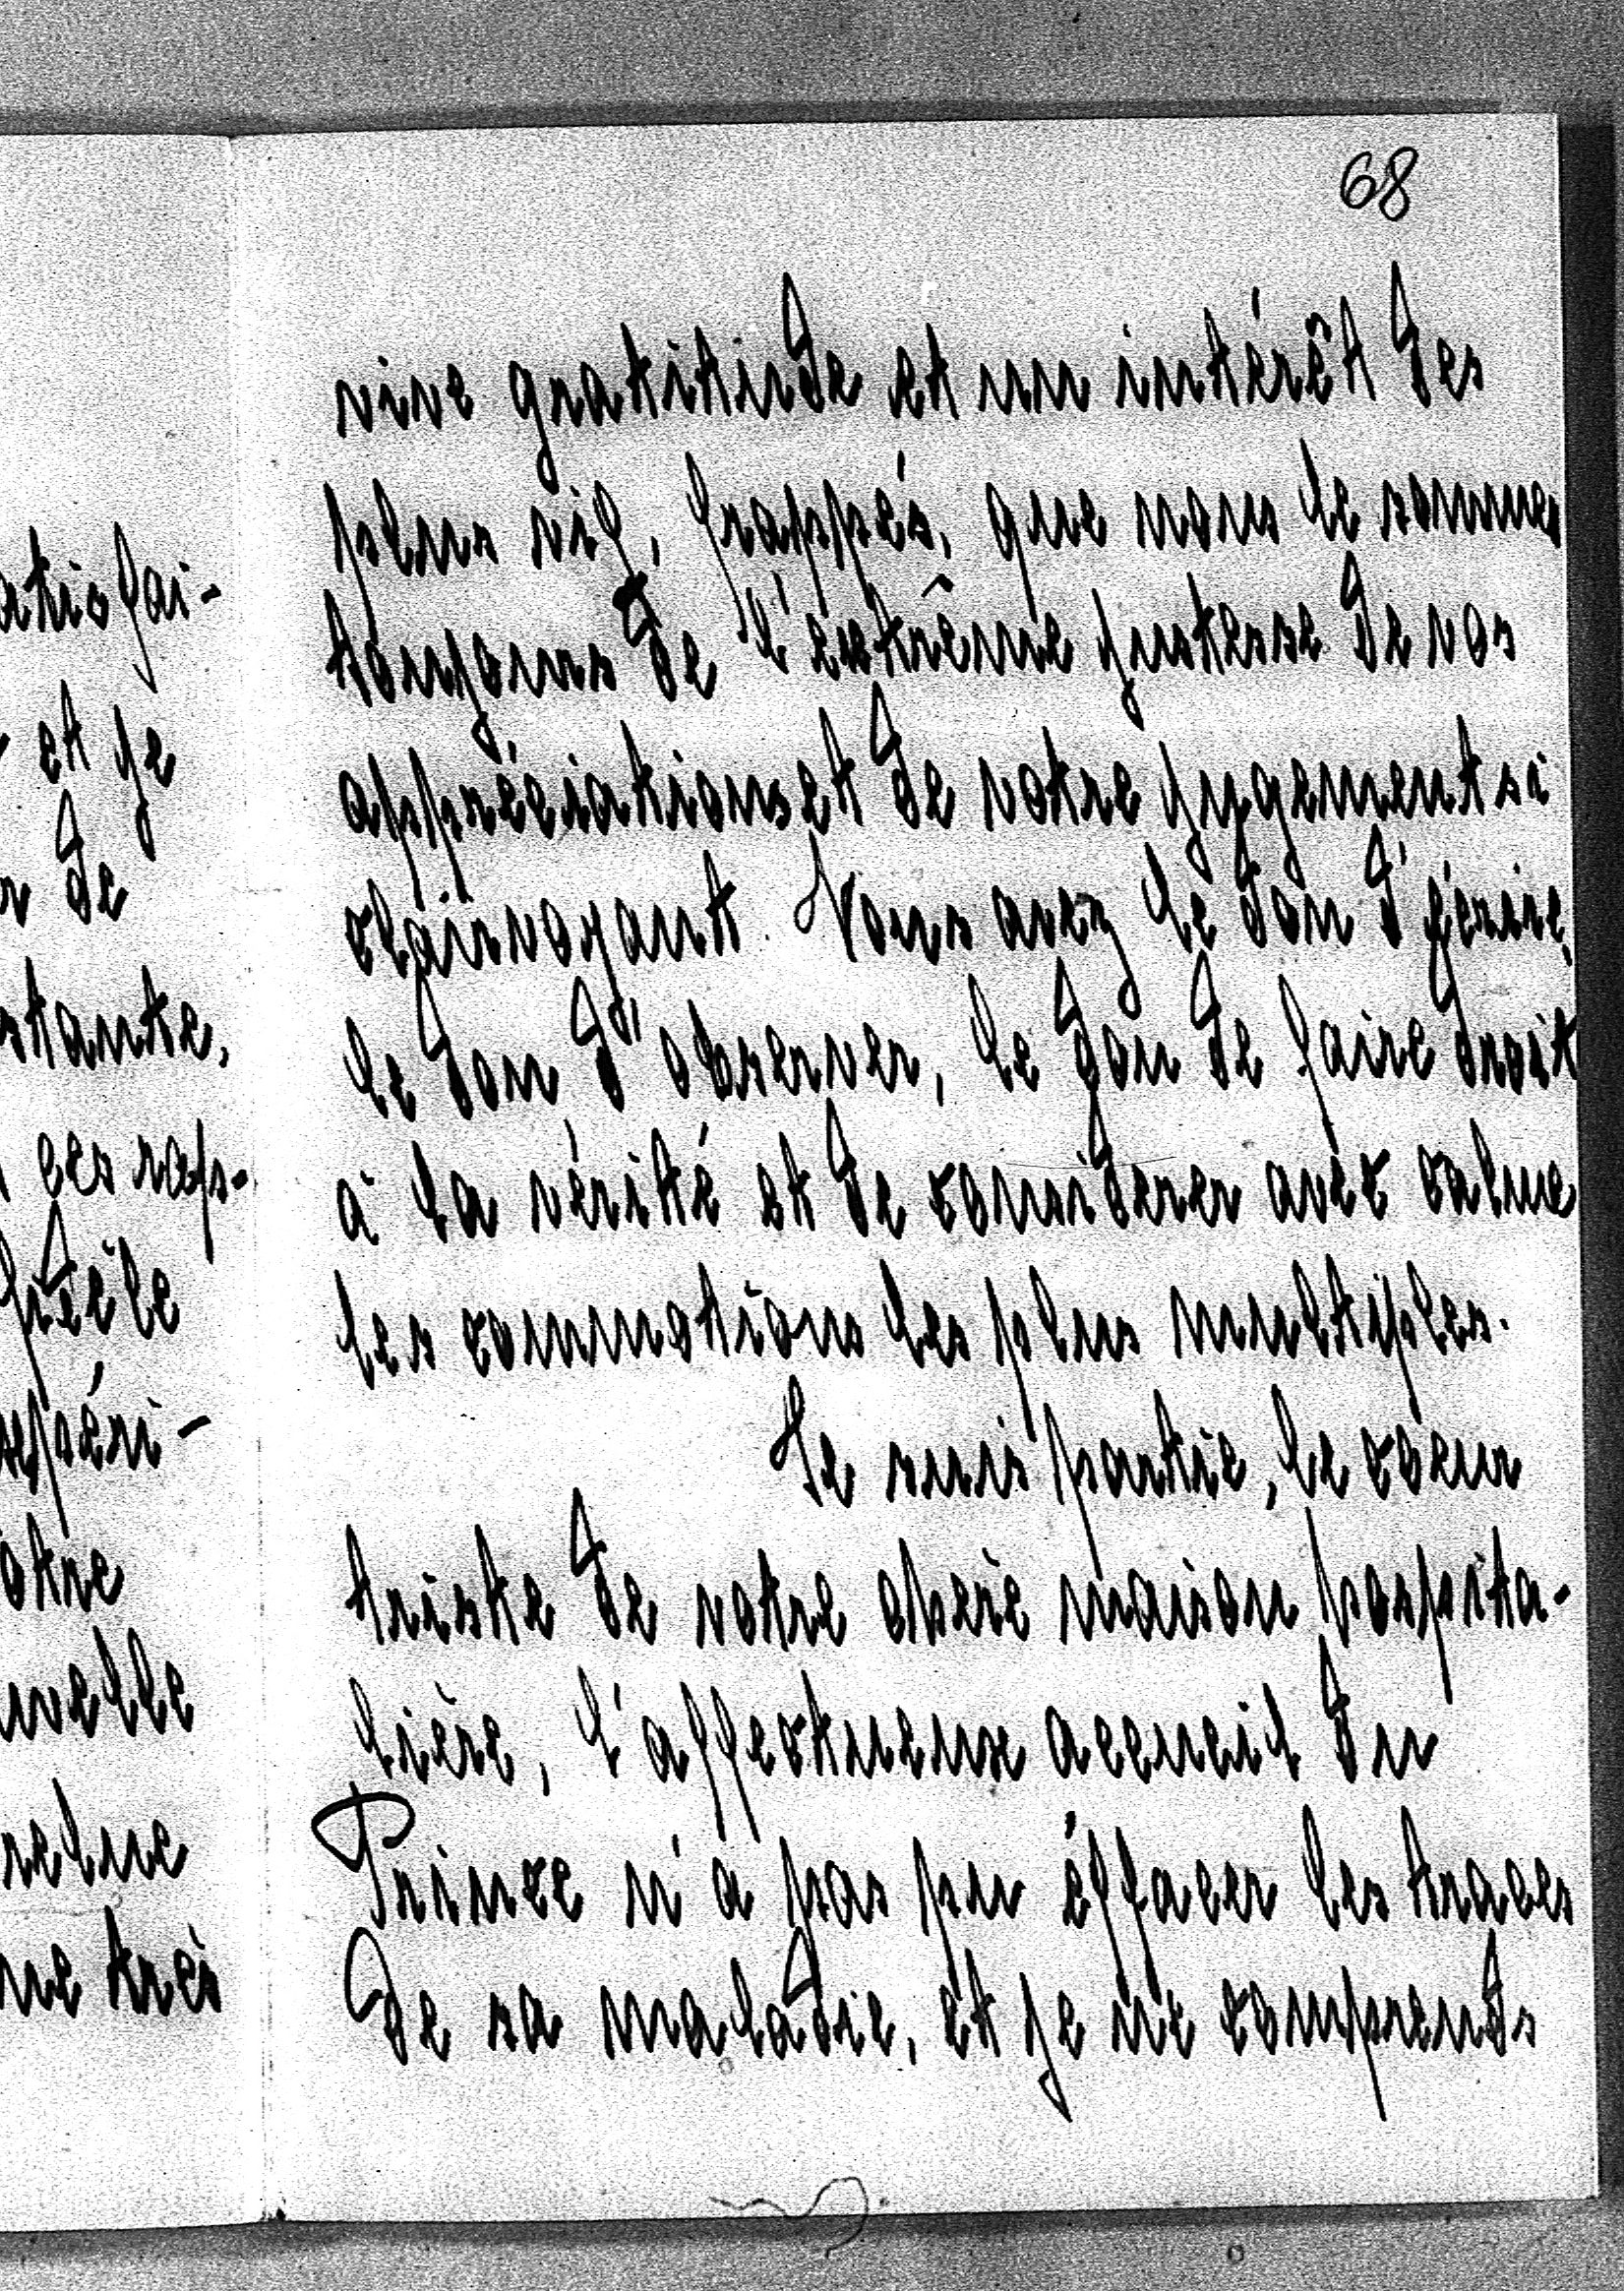 68
vive gratitude et un intérêt des
plus vif, frappés, que nous le sommes
toujours de l'extrême justesse de vos
appréciations et de votre jugement si
clairvoyant. Vous avez le don d'écrire,
le don d'observer, le don de faire droit
à la vérité et de considerer avec calme
les commotions les plus multiples.
Je suis partie, le coeur
triste de votre chère maison hospita-
lière, l'affectueux accueil du
Prince n'a pas pu éffacer les traces
de sa maladie, et je me comprends
atisfai-
et je
de
stante,
ces rap-
fidèle
otre
nvelle
ne très